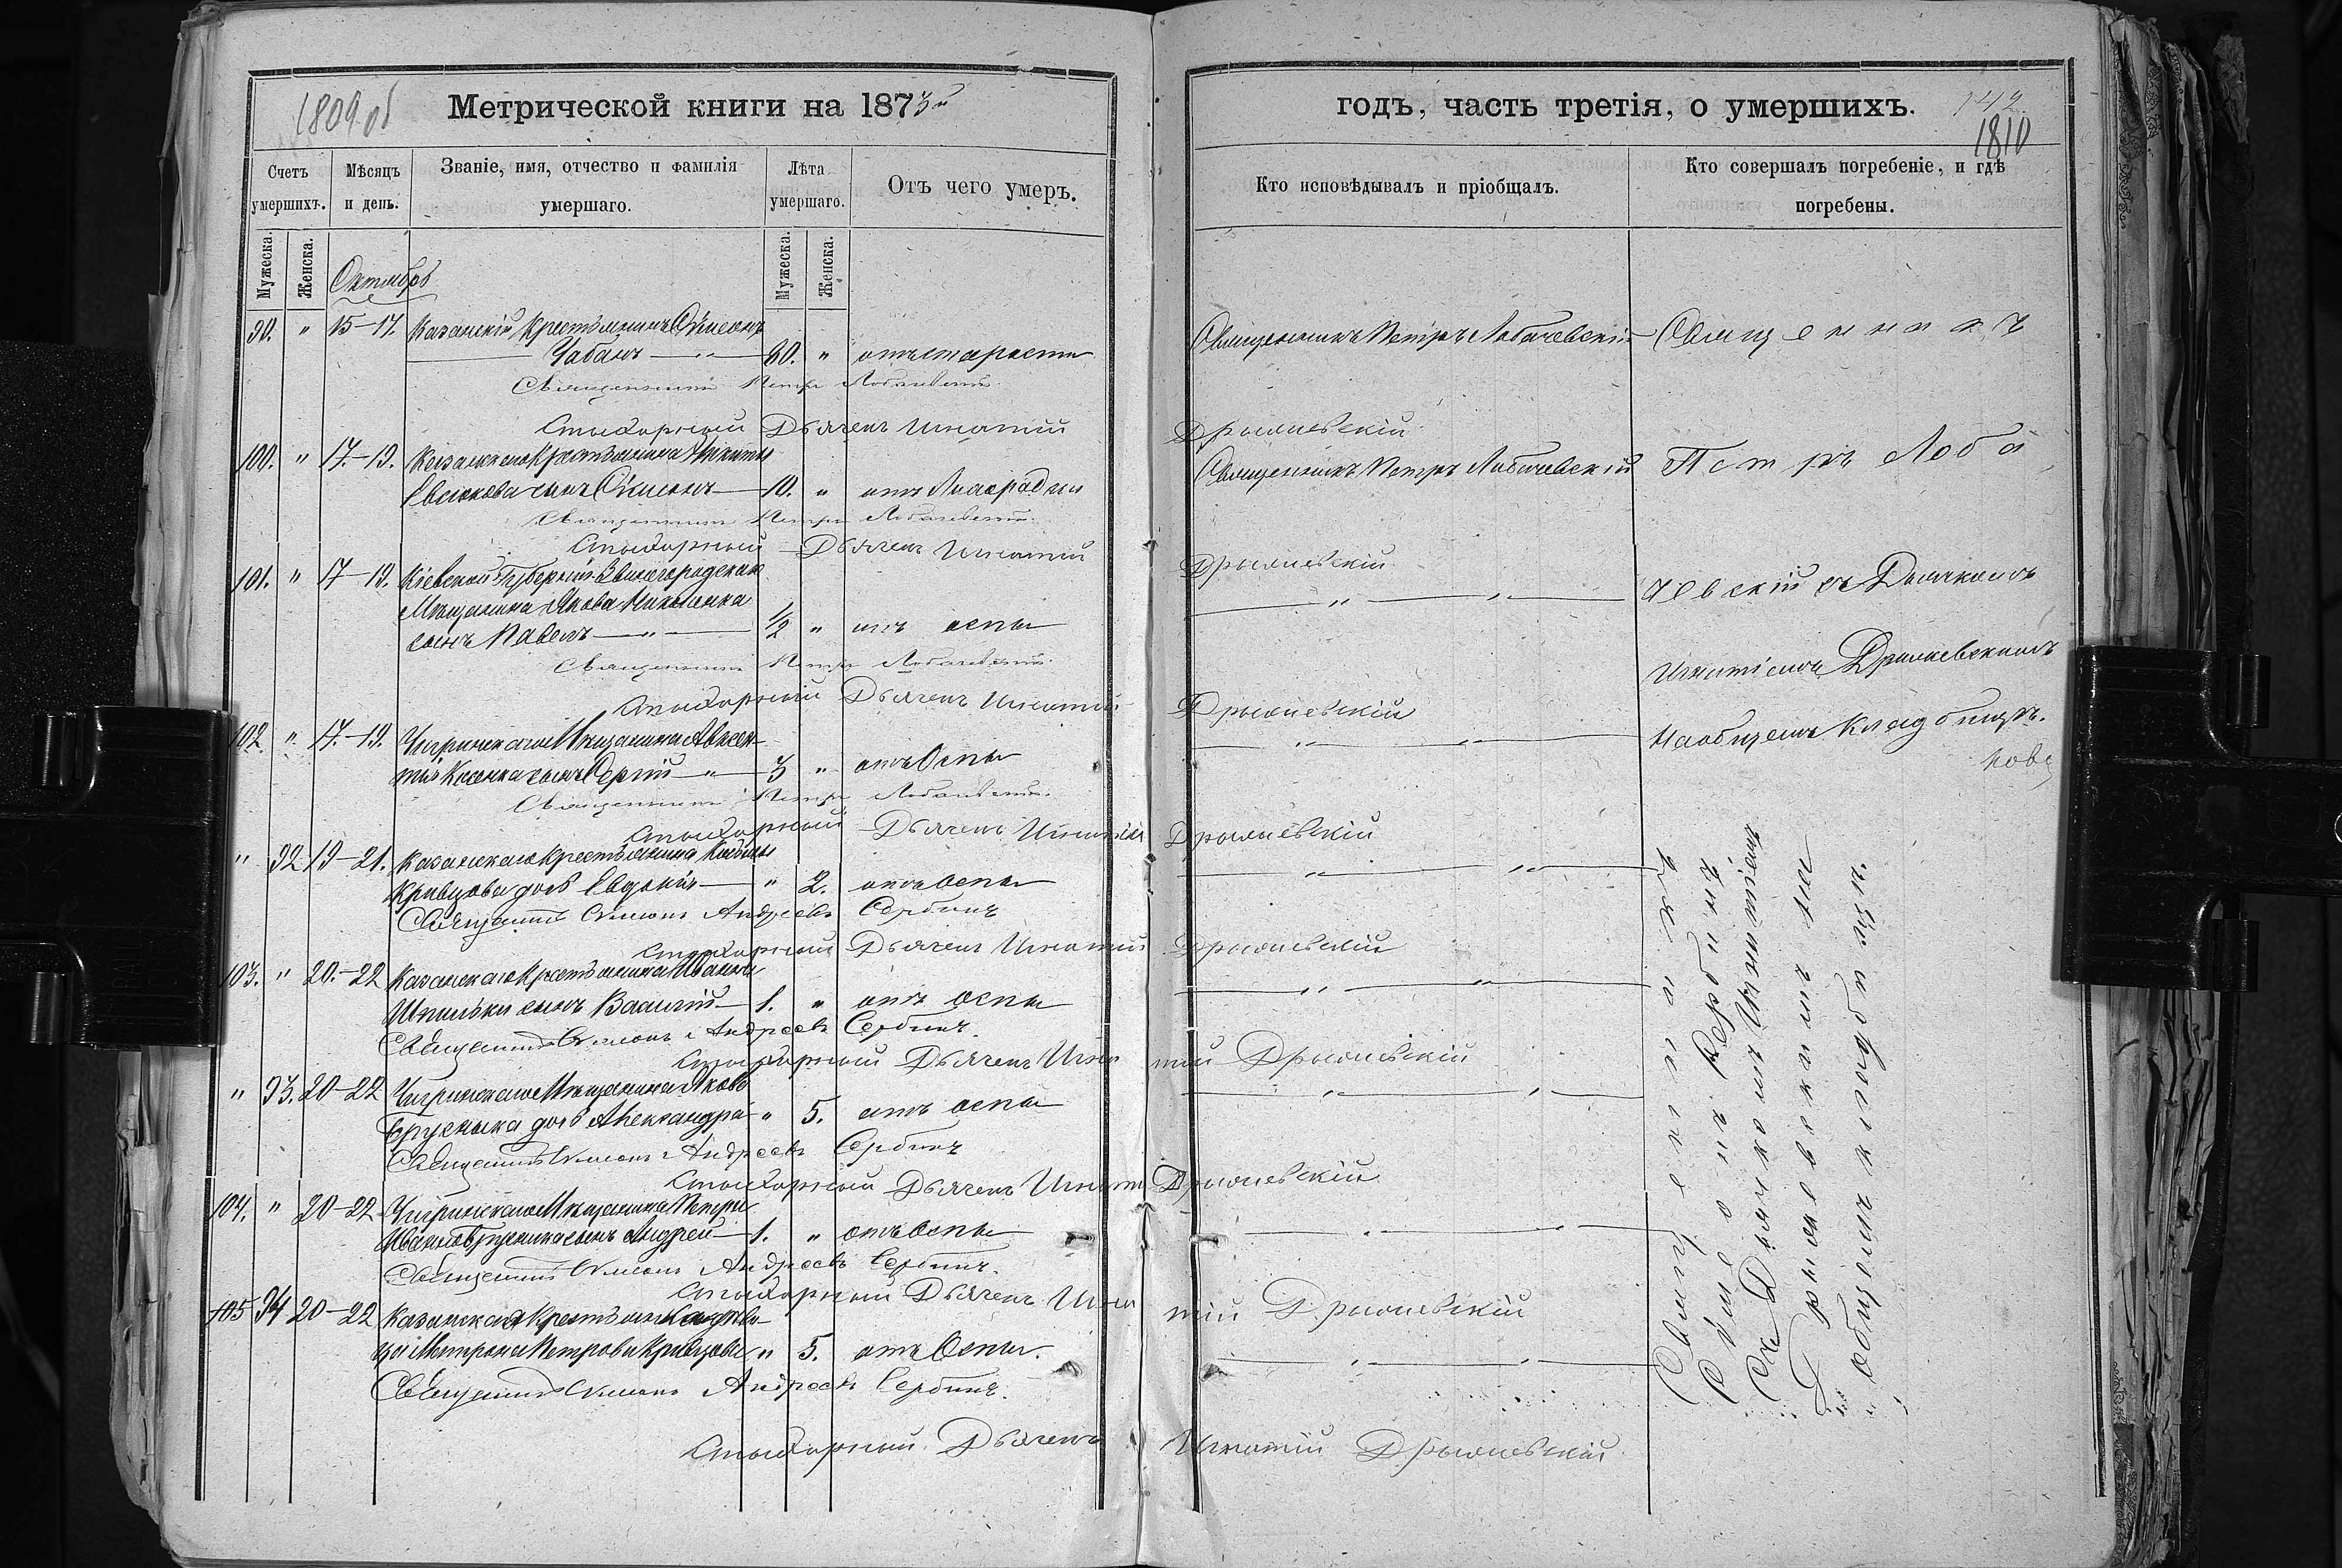 1809 об
Метрической книги на 1873й
Счетъ умершихъ.
Мѣсяцъ и день.
Званіе, имя, отчество и фамилія умершаго.
Лѣта умершаго.
Отъ чего умеръ.
Мужеска.
Женска.
Мужеска.
Женска.
Октябрь
" 15-17. Казанскій Крестьянинъ Сѵмеонъ
Чабанъ — " — 80. " отъ старости
Священникъ Петръ Лобачевскій
Стихарный Дьячекъ Игнатій
100. " 17-19. Казанскаго Крестьянина Никиты
Евсюкова сынъ Сѵмеонъ — 10. " отъ Лихорадки
Священникъ Петръ Лобачевскій
Стихарный Дьячекъ Игнатій
101. " 17-19. Кіевской Губерніи Звенигородскаго
Мѣщанина Якова
сынъ Павелъ — " — 1/2 " отъ оспы
Священникъ Петръ Лобачевскій
Стихарный Дьячекъ Игнатій
102. " 17-19. Чигринскаго Мѣщанина Авксен-
тія сынъ Сергій — " — 3 " отъ Оспы
Священникъ Петръ Лобачевскій
Стихарный Дьячекъ Игнатій
" 92 19-21. Казанскаго Крестьянина
Кривцова дочь Евдокія — " 2. отъ оспы
Священникъ Сѵмеонъ Андреевъ Сербинъ
Стихарный Дьячекъ Игнатій
103. " 20-22 Казанскаго Крестьянина Ивана
Шпильки сынъ Василій — 1. " отъ оспы
Священникъ Сѵмеонъ Андреевъ Сербинъ
Стихарный Дьячекъ Игна
" 93. 20-22 Чигринскаго Мѣщанина Якова
дочь Александра " 5. отъ оспы
Священникъ Сѵмеонъ Андреевъ Сербинъ
Стихарный Дьячекъ Игнат
104. " 20-22 Чигринскаго Мѣщанина Петра
сынъ Андрей — 1. " отъ оспы
Священникъ Сѵмеонъ Андреевъ Сербинъ.
Стихарный Дьячекъ Игна
105 94 20-22 Казанская
Петрова Кривцова " 5. отъ Оспы.
Священникъ Сѵмеонъ Андреевъ Сербинъ.
Стихарный Дьячекъ
годъ, часть третія, о умершихъ.
142
1810
Кто исповѣдывалъ и пріобщалъ.
Кто совершалъ погребеніе, и гдѣ погребены.
Священникъ Петръ Лобачевскій
Дрыжевскій
Священникъ Петръ Лобачевскій
Дрыжевскій
— " — " —
Дрыжевскій
— " — " —
Дрыжевскій
— " — " —
Дрыжевскій
— " — " —
тій Дрыжевскій
— " — " —
Дрыжевскій
— " — " —
тій Дрыжевскій
— " — " —
Игнатій Дрыжевскій
Священникъ
Петръ Лоба
чевскій съ Дьячкомъ
Игнатіемъ Дрыжевскимъ
на общемъ Кладбищѣ.
Священникъ
Сѵмеонъ Сербинъ
Съ Дьячкомъ Игнатіемъ
Дрыжевскимъ на
общемъ кладбищѣ.